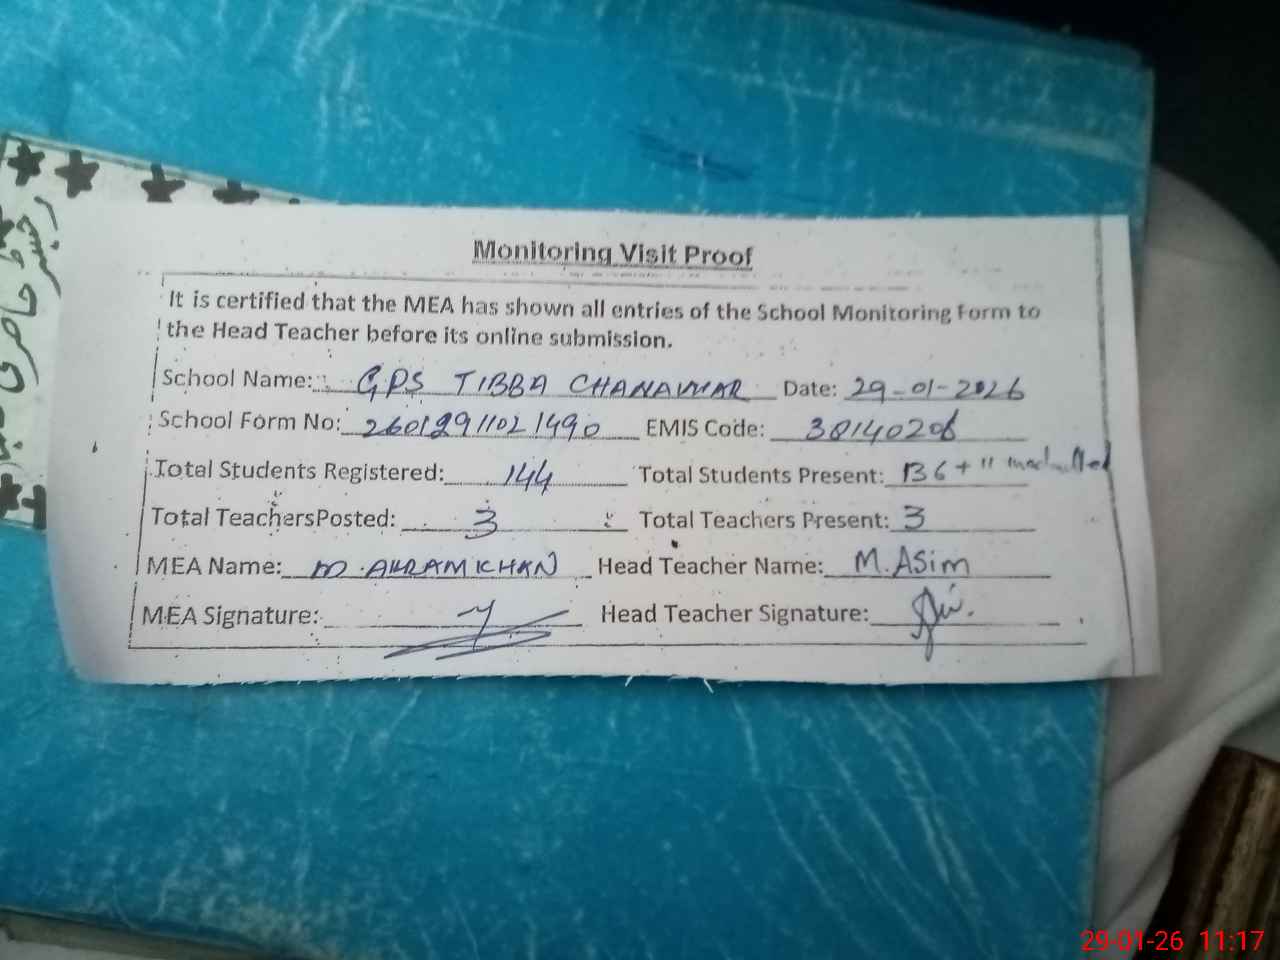 رجسٹر حاضری
Monitoring Visit Proof
It is certified that the MEA has shown all entries of the School Monitoring Form to
the Head Teacher before its online submission.
School Name: GPS TIBBA CHANAWAR Date: 29-01-2026
School Form No: 26012911021490 EMIS Code: 38140206
Total Students Registered: 144 Total Students Present: 136 + 11
Total TeachersPosted: 3 Total Teachers Present: 3
MEA Name: M. AKRAM KHAN Head Teacher Name: M. ASim
MEA Signature: Head Teacher Signature:
29-01-26 11:17